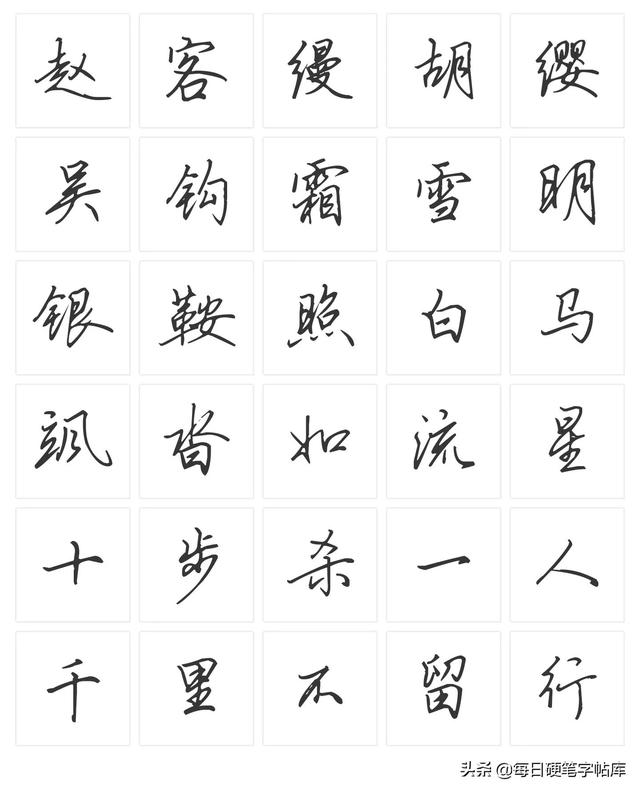 赵客缦胡缨
吴钩霜雪明
银鞍照白马
飒沓如流星
十步杀一人
千里不留行
头条 @每日硬笔字帖库